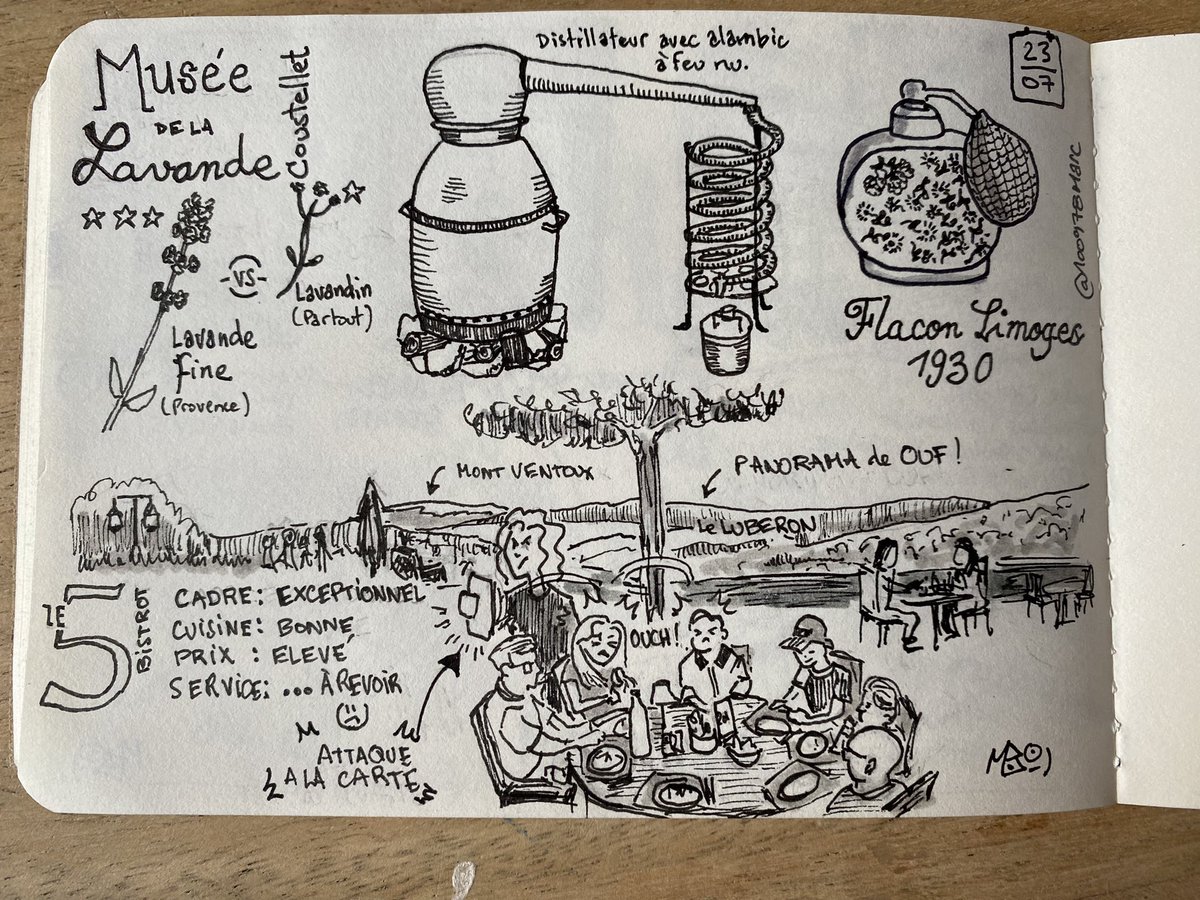 Musée
DE LA
Lavande
Coustellet
Distillateur avec alambic
à feu nu.
23
07
@100978MARC
VS
Lavande
fine
(Provence)
Lavandin
(Partout)
Flacon Limoges
1930
MONT VENTOUX
PANORAMA de OUF!
Le LUBERON
LE
5
BISTROT
CADRE: EXCEPTIONNEL
CUISINE: BONNE
PRIX : ELEVÉ
SERVICE: ... À REVOIR
ATTAQUE
A LA CARTE
OUCH!